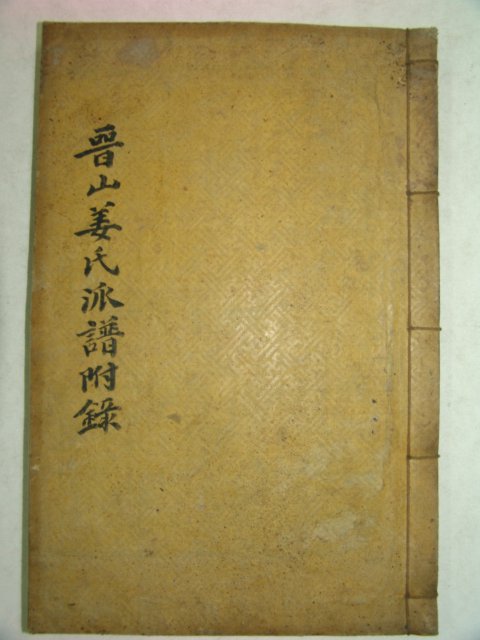 晋山姜氏派譜附錄